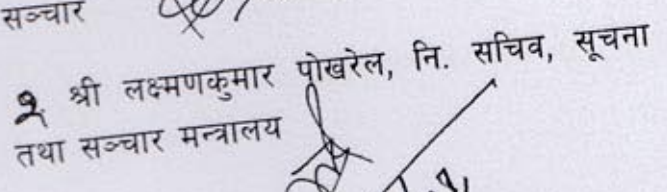 सञ्चार
२ श्री लक्ष्मणकुमार पोखरेल, नि. सचिव, सूचना
तथा सञ्चार मन्त्रालय